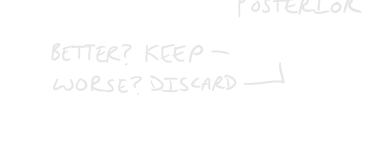 POSTERIOR
BETTER? KEEP
WORSE? DISCARD